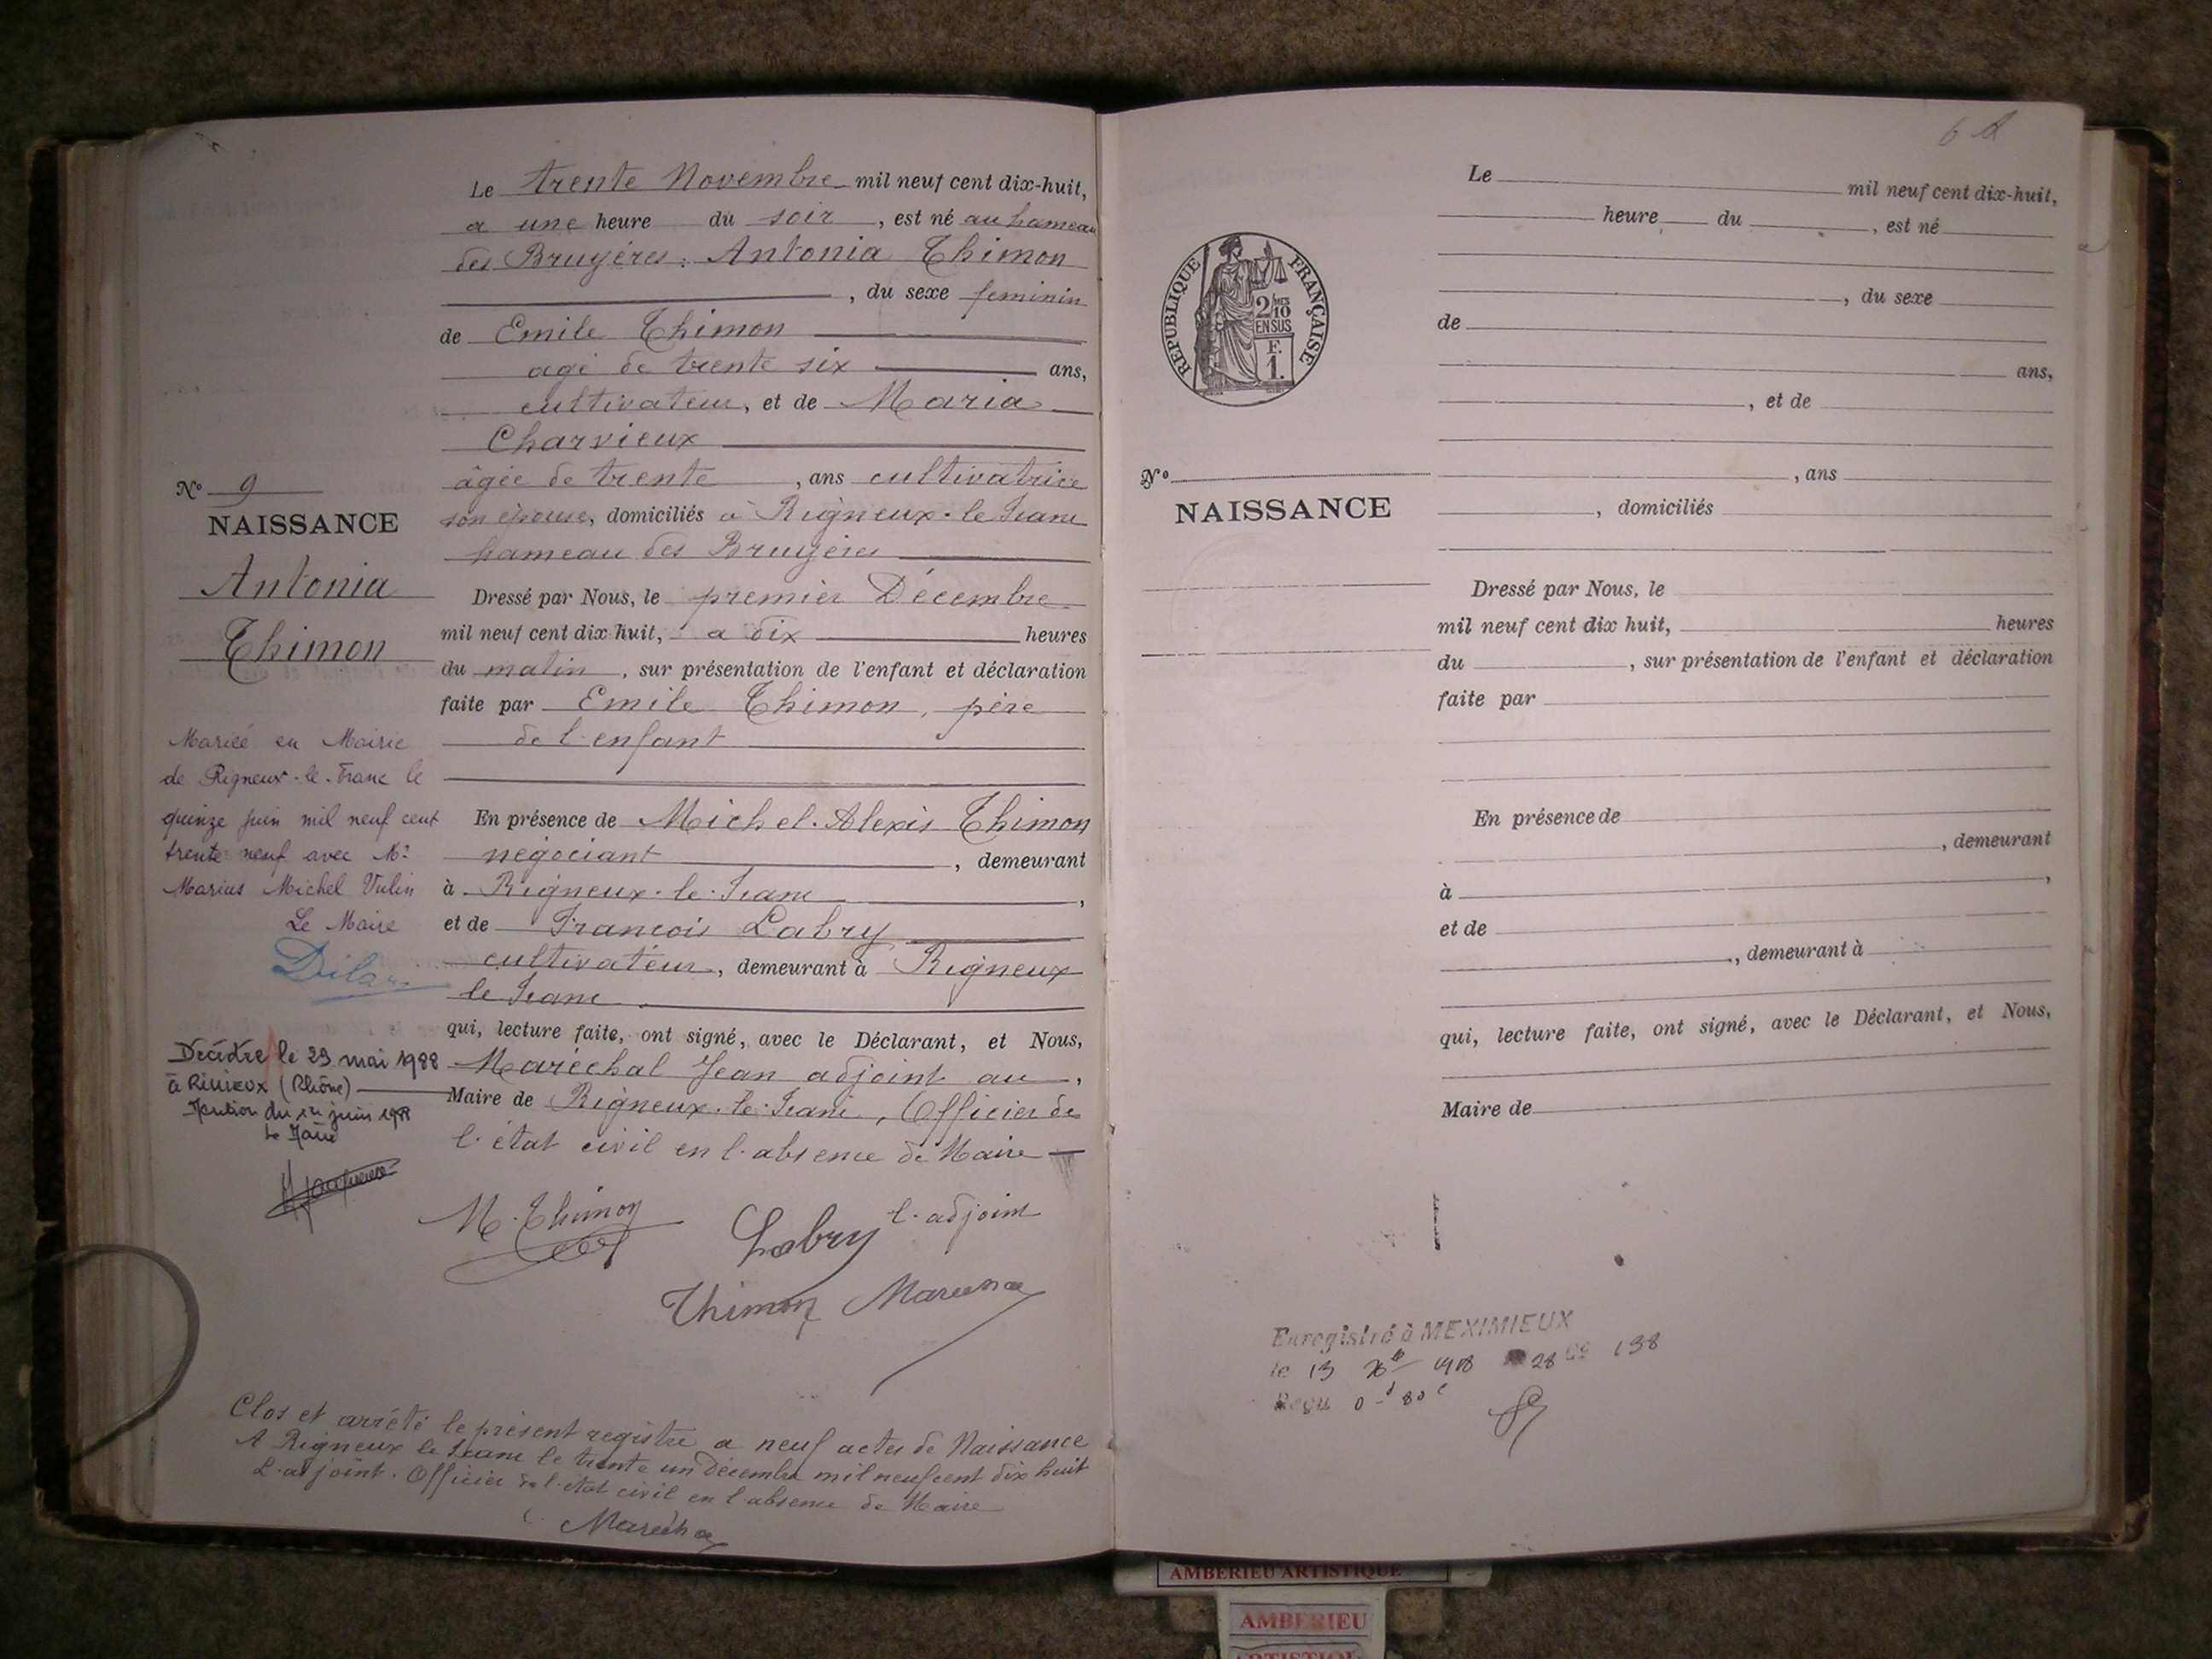 Le trente Novembre mil neuf cent dix-huit,
a une heure du soir, est né au hameau
des Bruyéres: Antonia Thimon
, du sexe feminin
de Emile Thimon
agé de trente six ans,
cultivateur, et de Maria
Charvieux
âgée de trente, ans cultivatrice
son épouse, domiciliés à Rigneux-le-Franc
hameau des Bruyères
Dressé par Nous, le premier Décembre
mil neuf cent dix huit, a dix heures
du matin, sur présentation de l'enfant et déclaration
faite par Emile Thimon, père
de l'enfant
En présence de Michel-Alexis Thimon
négociant, demeurant
à Rigneux-le-Franc,
et de François Labry
cultivateur, demeurant à Rigneux
le Franc
qui, lecture faite, ont signé, avec le Déclarant, et Nous,
Maréchal Jean adjoint au,
Maire de Rigneux-le-Franc, Officier de
l'état civil en l'absence de Maire
M. Thimon
Labry
l'adjoint
Thimon
Maréchal
Nº 9
NAISSANCE
Antonia
Thimon
Mariée en Mairie
de Rigneux-le-Franc le
quinze juin mil neuf cent
trente neuf avec Mr
Marius Michel Vulin
Le Maire
Décédée le 29 mai 1988
à Rillieux (Rhône)
Mention du 1er juin 1988
Le Maire
Clos et arrêté le présent registre a neuf actes de Naissance
A Rigneux le Franc le trente un Décembre mil neuf cent dix huit
L'adjoint. Officier de l'état civil en l'absence de Maire
Maréchal
RÉPUBLIQUE FRANÇAISE
2/10 MES
EN SUS
F.
1.
Nº
NAISSANCE
Le mil neuf cent dix-huit,
heure du, est né
, du sexe
de
ans,
, et de
, ans
, domiciliés
Dressé par Nous, le
mil neuf cent dix huit, heures
du, sur présentation de l'enfant et déclaration
faite par
En présence de
, demeurant
à,
et de
, demeurant à
qui, lecture faite, ont signé, avec le Déclarant, et Nous,
Maire de
Enregistré à MEXIMIEUX
le 13 1918 28 138
Reçu 0 80 c
AMBERIEU ARTISTIQUE
AMBERIEU
ARTISTIQUE